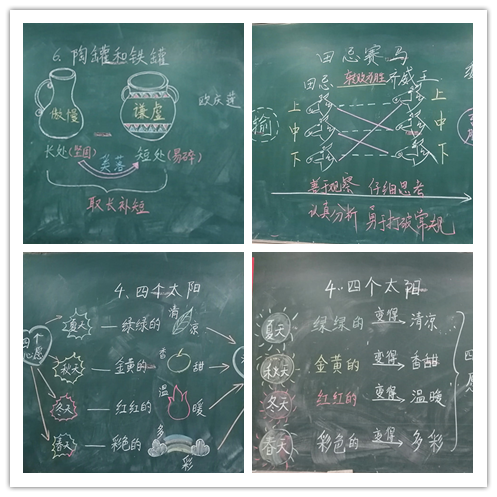 6. 陶罐和铁罐
傲慢
谦虚
欧庆莲
长处(坚固)
奚落
短处(易碎)
取长补短
田忌赛马
田忌
齐威王
输
上
上
中
中
下
下
善于观察 仔细思考
认真分析 勇于打破常规
4、四个太阳
四个
心愿
夏天 — 绿绿的
清
凉
秋天 — 金黄的
香
甜
冬天 — 红红的
温
暖
春天 — 彩色的
多
彩
4..四个太阳
夏天 绿绿的 变得 清凉
秋天 金黄的 变得 香甜
冬天 红红的 变得 温暖
春天 彩色的 变得 多彩
四